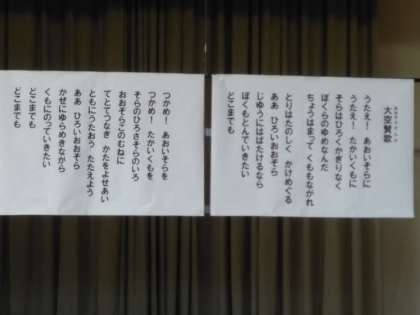 大空賛歌
うたえ！ あおいそらに
うたえ！ たかいくもに
そらはひろくかぎりなく
ぼくらのゆめなんだ
ちょうはまって くももながれ
とりはたのしく かけめぐる
ああ ひろいおおぞら
じゆうにはばたけるなら
ぼくもとんでいきたい
どこまでも
つかめ！ あおいそらを
つかめ！ たかいくもを
そらのひろさそらのいろ
おおぞらこのむねに
てとてつなぎ かたをよせあい
ともにうたおう たたえよう
ああ ひろいおおぞら
かぜにゆらめきながら
くもにのっていきたい
どこまでも
どこまでも